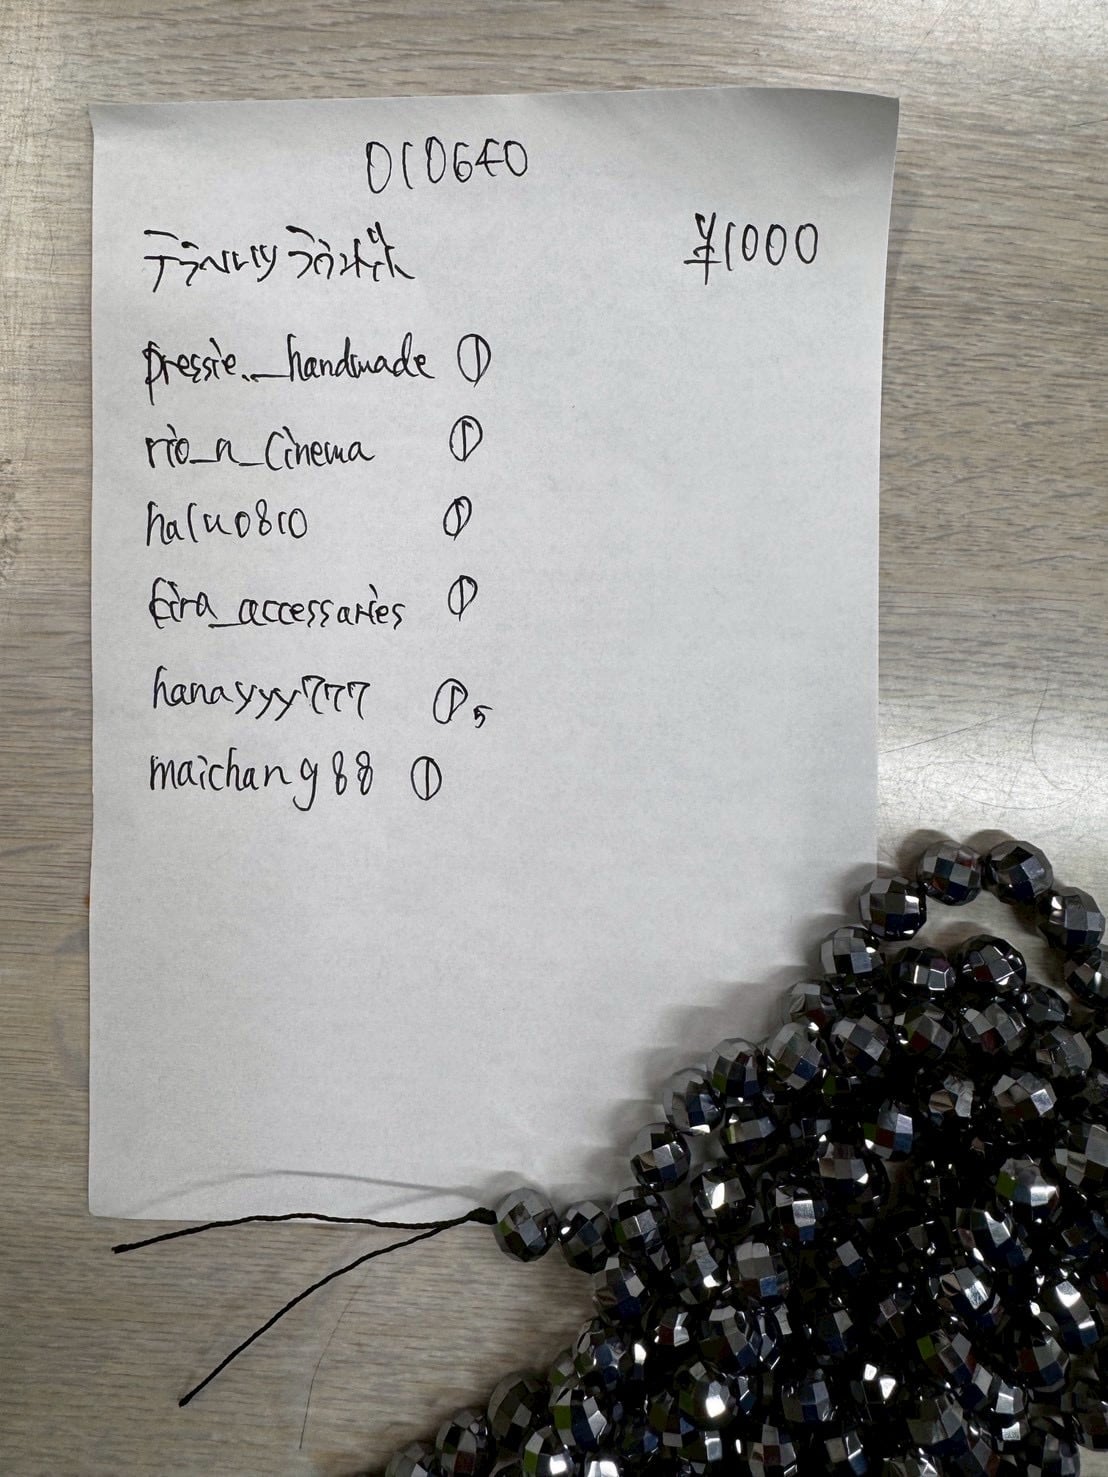 010640
テラヘルツ ラウンドカット ¥1000
pressie._handmade ①
rio_n_cinema ①
haru0810 ①
eira_accessaries ①
hanayyy777 ①5
maichang88 ①